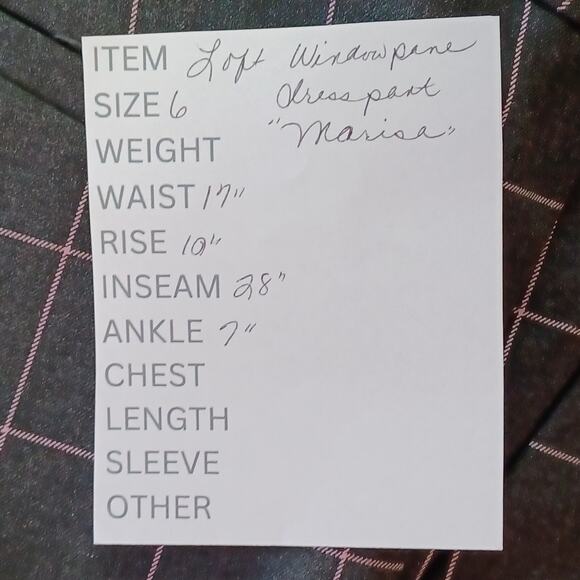 ITEM Loft Windowpane
SIZE 6 dress pant
"Marisa"
WEIGHT
WAIST 17"
RISE 10"
INSEAM 28"
ANKLE 7"
CHEST
LENGTH
SLEEVE
OTHER